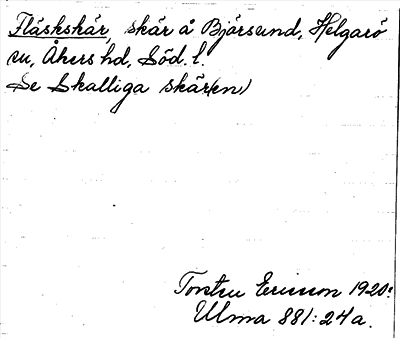 Fläskskär, skär å Björsund, Helgarö
sn, Åkers hd, Söd. l.
Se Skalliga skär(en)
Torsten Ericsson 1920.
Ulma 881:24a.